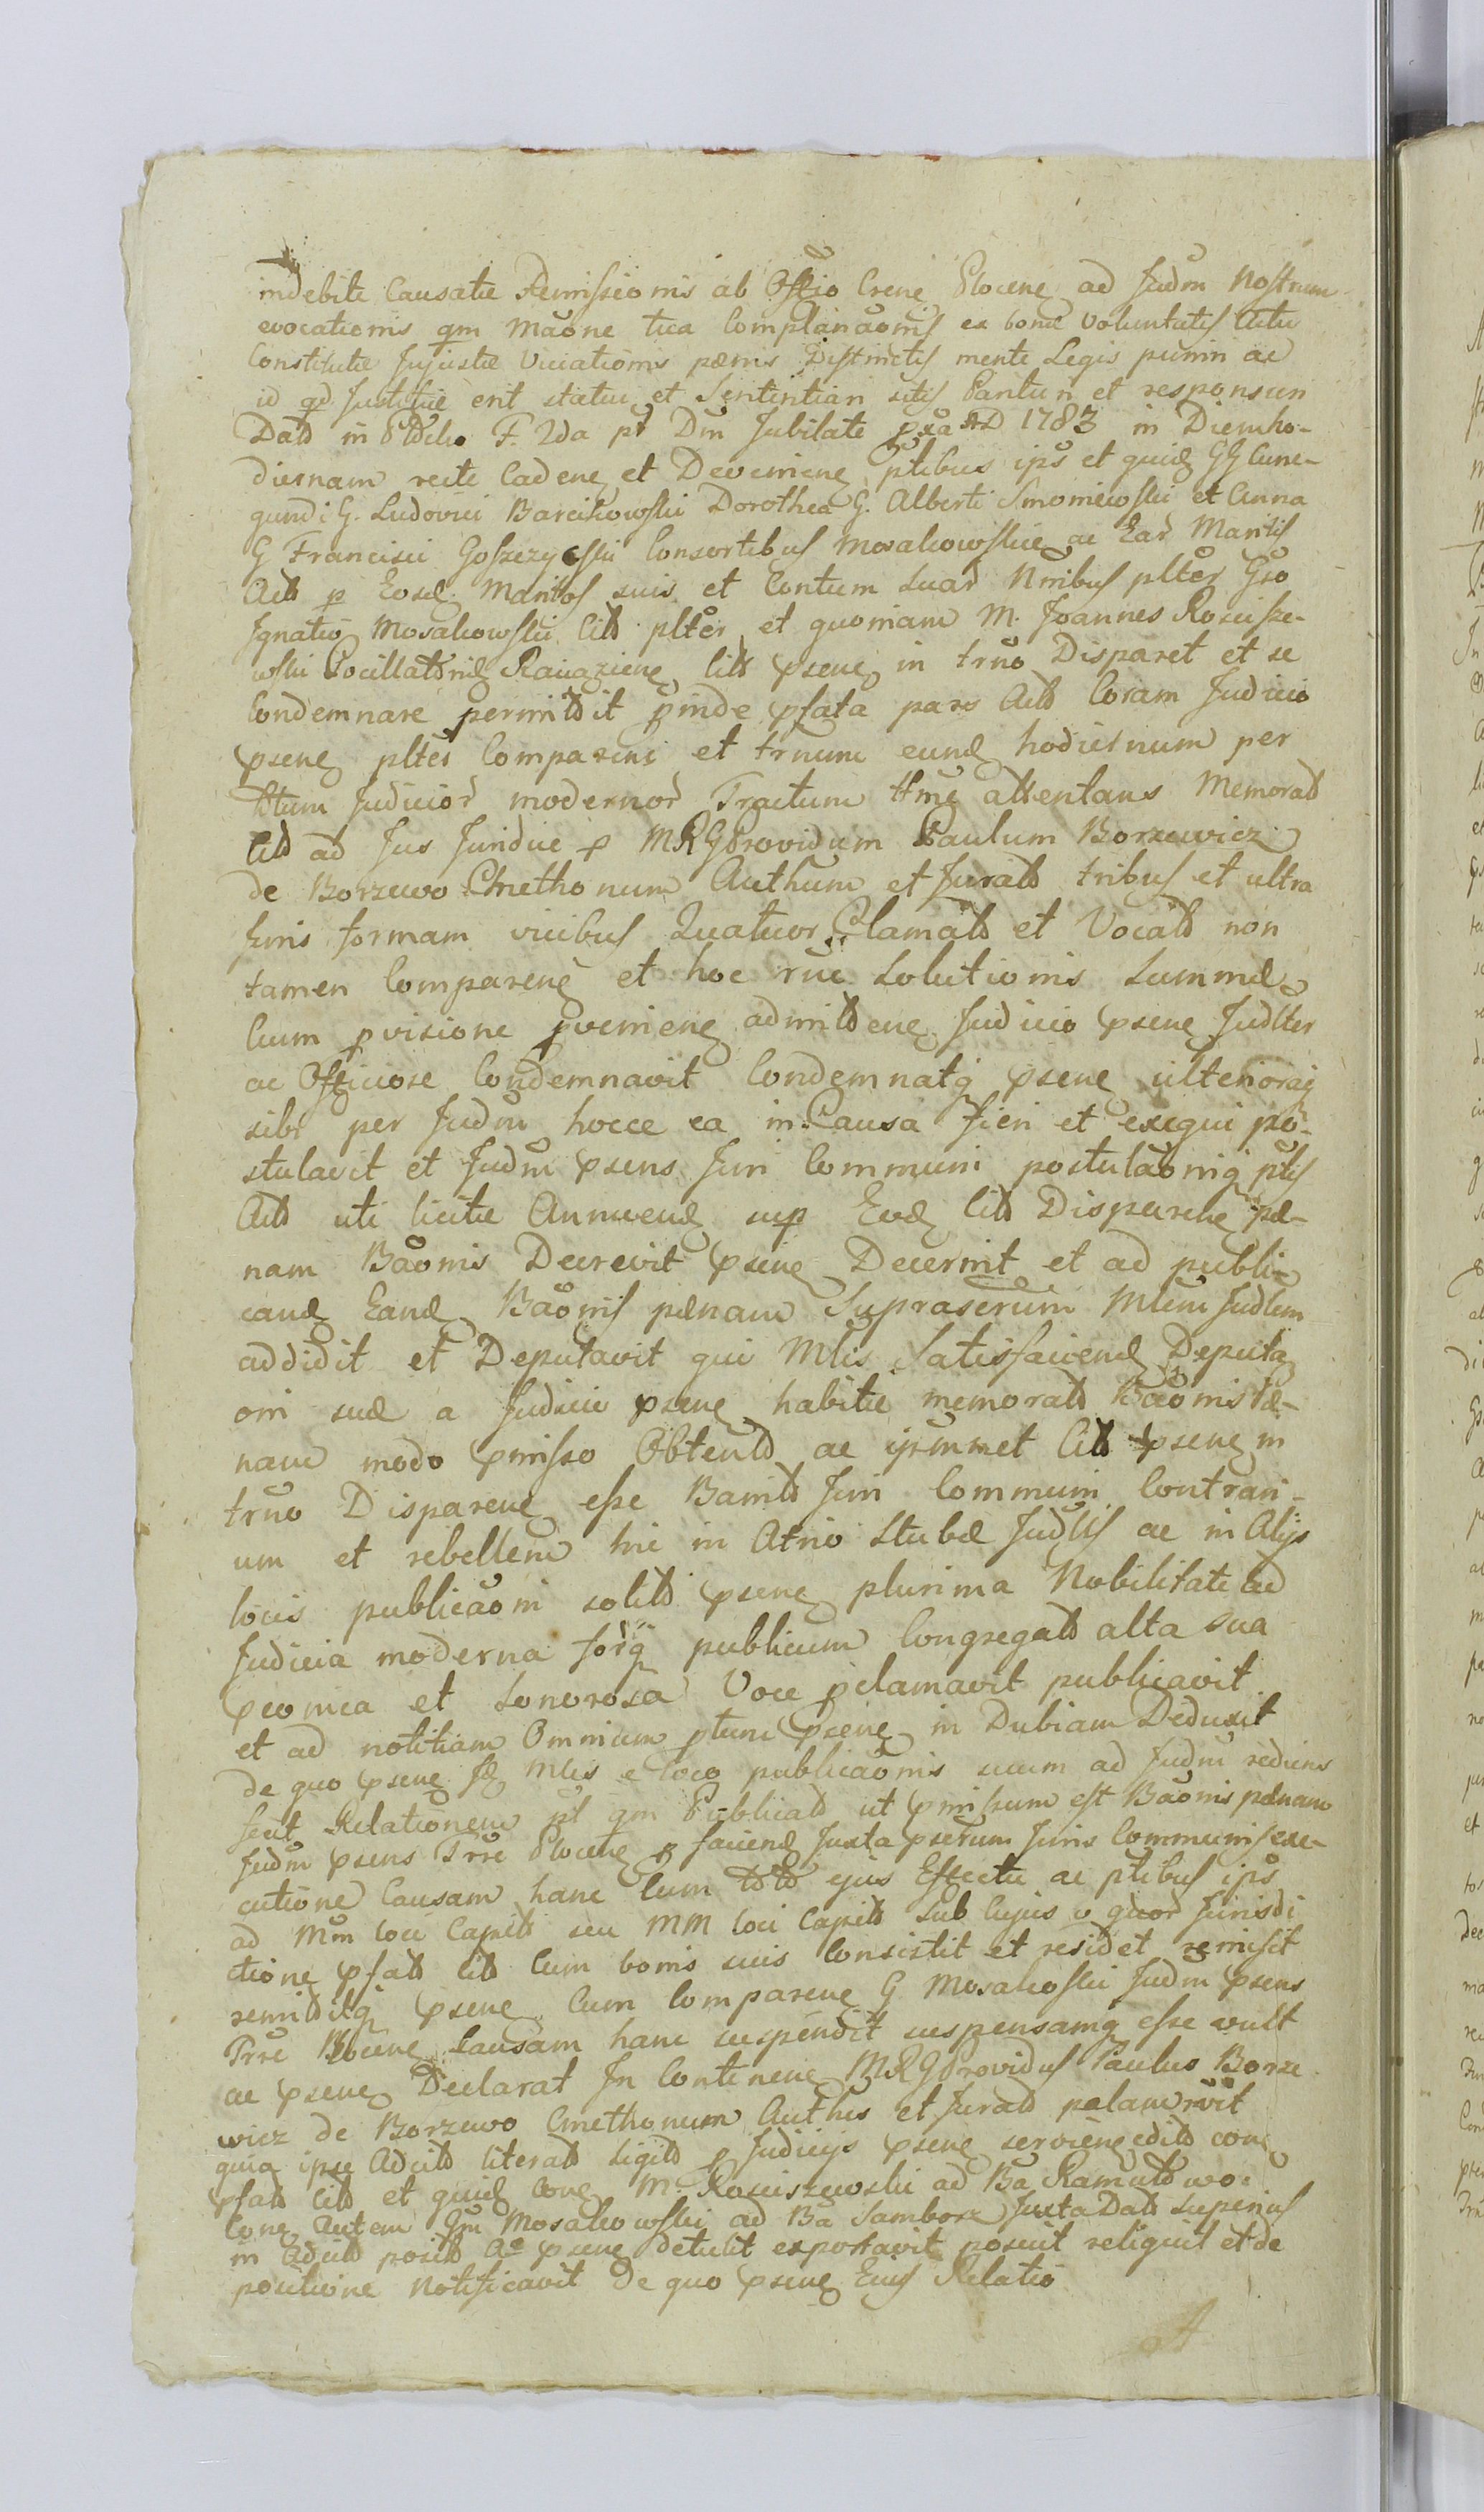 indebite Causatæ Remissionis ab Offio Crene Plocene ad Judm Nostrum
evocationis qm maone tua Complanaonis ex bonæ voluntatis Actu
Constitutæ Injustæ Vocationis pœnis Districtis mente Legis puniri ac
id qd Justitiæ erit statui et Sententiari sitis Paritur et responsur
Datt in F. 2da pt Dm Jubilate pxa AD 1783 in Diem ho-
diernam recte Cadene et Deveniene ptibus ips et quid GG Cune-
gundi G. Ludovici Barcikowski Dorothea G. Alberti Smoniewski et Anna
G Francisci Goszczycski Consortibus Mosakowskie ac Ear Maritis
Actt p Eosd Maritos suis et Contum suar Nnibus plter Gso
Ignatio Mosakowski Citt plter et quoniam M. Joannes Rosciszew-
wski Pocillattrid Raciaziene Citt psene in trno Disparet et se
Condemnare permittit pinde pfata pars Actt Coram Judicio
psene plter Comparens et trnum eund hodiernum per
ttum Judicior modernor Tractum ttme attentans Memoratt
Citt ad Jus Juridice p MRG Providum Paulum Borzewicz
de Borzewo Cmethonum Authum et Juratt tribus et ultra
Juris formam vicibus Quatuor Clamatt et Vocatt non
tamen Comparene et hoc rne Solutionis Summæ
Cum pvisione pveniene admittene Judicio psene Judlter
ac Officiose Condemnavit Condemnatq psene ulterioraq
sibi per Judm hocce ea in Causa fieri et exequi po-
stulavit et Judm psens Juri Communi postulaoniq ptis
Actt uti licitæ Annuend sup Eod Citt Disparene pœ-
nam Baonis Decrevit psene Decernit et ad publi-
cand Eand Baonis pœnam Suprasertum Mlem Judlem
addidit et Deputavit qui Mlis Satisfaciend Deputa
oni suæ a Judicio psene habitæ memoratt Baonis Pœ-
nam modo pmisso Obtentt ac ipsummet Citt psene in
trno Disparene esse Banitt Juri Communi Contrari-
um et rebellem hic in Atrio Stubæ Judlis ac in Alijs
locis publicaoni solitt psene plurima Nobilitate ad
Judicia moderna forq publicum Congregatt alta sua
pconica et Sonorosa Voce pclamavit publicavit
et ad notitiam Omnium ptum psene in Dubiam Deduxit
de quo psene Jd Mlis e loco publicaonis suum ad Judm rediens
fecit Relationem pt qm Publicatt ut pmissum est Baonis pœnam
Judm psens Trre Plocene p faciend Juxta psertum Juris Communis exe-
cutione Causam hanc Cum tott ejus Effectu ac ptibus ips
ad Mm loci Capitt seu MM loci Capitt sub Cujus v quor Jurisdi
ctione pfatt Citt Cum bonis suis Consistit et residet remisit
remittitq psene Cum Comparene G Mosakoski Judm psens
Trre Plocene Causam hanc suspendit suspensamq esse vult
ac psene Declarat In Continene MRG Providus Paulus Borze
wicz de Borzewo Cmethonum Authus et Juratt palam rvit
quia ipse Adcitt literatt sigitt p Judicijs psene serviene editt con
pfatt Citt et quid Cone M. Rosciszewski ad Ba Ramutowo
Cone Autem Gm Mosakowski ad Ba Samborz Juxta Datt superius
in Adcitt positt Ao psene detulit exportavit posuit reliquit et de
positione notificavit de quo psene Eius Relatio